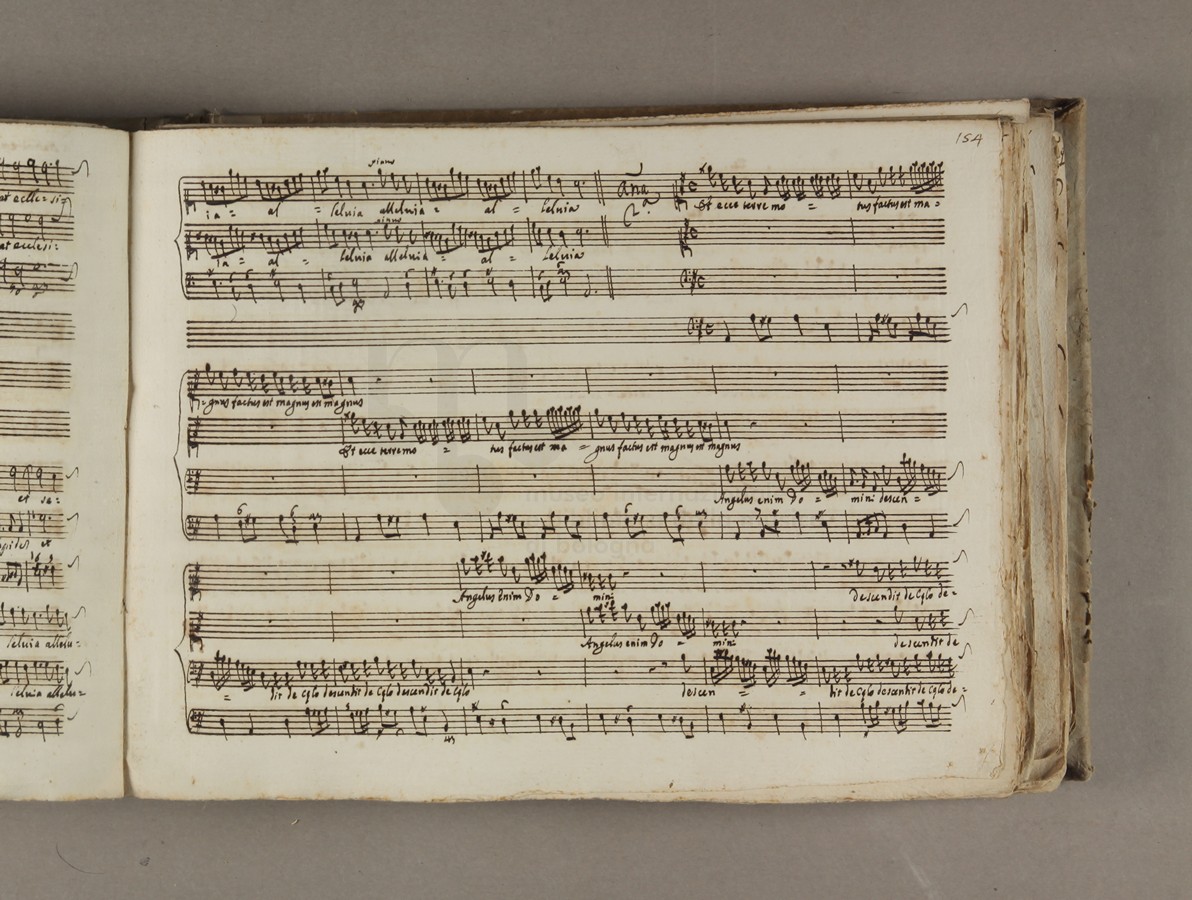 154
piano
ia = al = leluia alleluia = al = leluia Ana Et ecce terre mo = tus factus est ma =
2.a
piano
ia = al = leluia alleluia = al = leluia
= gnus factus est magnus est magnus
Et ecce terre mo = tus factus est ma = gnus factus est magnus est magnus
Angelus enim Do = mini descen =
6
Angelus enim Do = mini descendit de Celo de =
Angelus enim Do = mini descendit de
= dit de Celo descendit de Celo descendit de Celo descen = = dit de Celo descendit de Celo de =
et se:
leluia allelu =
museo internaz
bologna